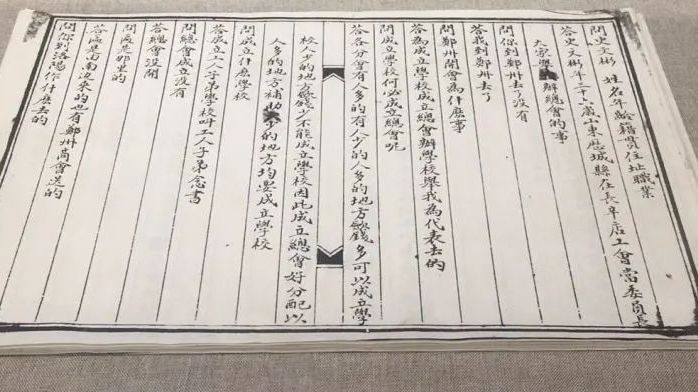 問史文彬 姓名年齡籍貫住址職業
答史文彬年三十六歲山東歷城縣在長辛店工會當委員長
大家舉辦總會的事
問你到鄭州去了沒有
答我到鄭州去了
問鄭州開會為什麽事
答為成立學校成立總會辦學校舉我為代表去的
問成立學校何必成立總會呢
答各分會有人多的有人少的人多的地方斂錢多可以成立學
校人少的地方斂錢少不能成立學校因此成立總會好分配以
人多的地方補助少的地方均要成立學校
問成立什麽學校
答成立工人子弟學校叫工人子弟念書
問總會成立沒有
答總會沒開
問匾是那里的
答匾是由南边來的也有鄭州商會送的
問你到洛陽作什麽去的